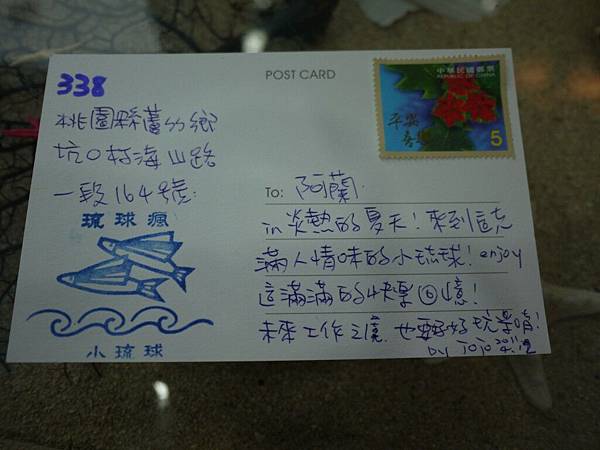 338
桃園縣蘆竹鄉
坑口村海山路
一段164號
琉球瘋
小琉球
POST CARD
中華民國郵票
REPUBLIC OF CHINA
平安
5
To: 阿蘭
in 炎熱的夏天!來到這充
滿人情味的小琉球!enjoy
這滿滿的快樂回憶!
未來工作之境,也要好好玩樂唷!
by jojo